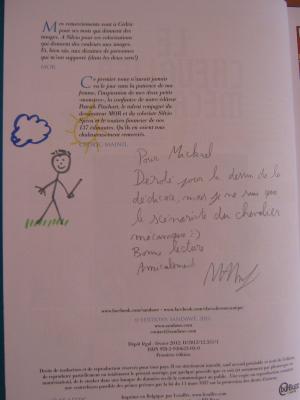 Mes remerciements vont à Cédric
pour ses mots qui donnent des
images. A Silvio pour ses colorisations
qui donnent des couleurs aux images.
Et, bien sûr, aux dizaines de personnes
qui m'ont supporté (dans les deux sens!)
MOR
Ce premier tome n'aurait jamais
vu le jour sans la patience de ma
femme, l'inspiration de mes deux petits
«monstres», la confiance de notre éditeur
Patrick Pinchart, le talent conjugué du
dessinateur MOR et du coloriste Silvio
Speca et le soutien financier de nos
137 édinautes. Qu'ils en soient tous
chaleureusement remerciés.
CEDRIC MAINIL
Pour Mickael
Désolé pour le dessin de la
dédicace, mais je ne suis que
le scénariste du chevalier
mécanique :)
Bonne lecture
Amicalement
www.facebook.com/sandawe
© EDITIONS SANDAWE, 2012
www.sandawe.com
contact@sandawe.com
Dépôt légal : février 2012
Première édition.
Imprimé en Belgique par Lesaffre. www.lesaffre-imp.com